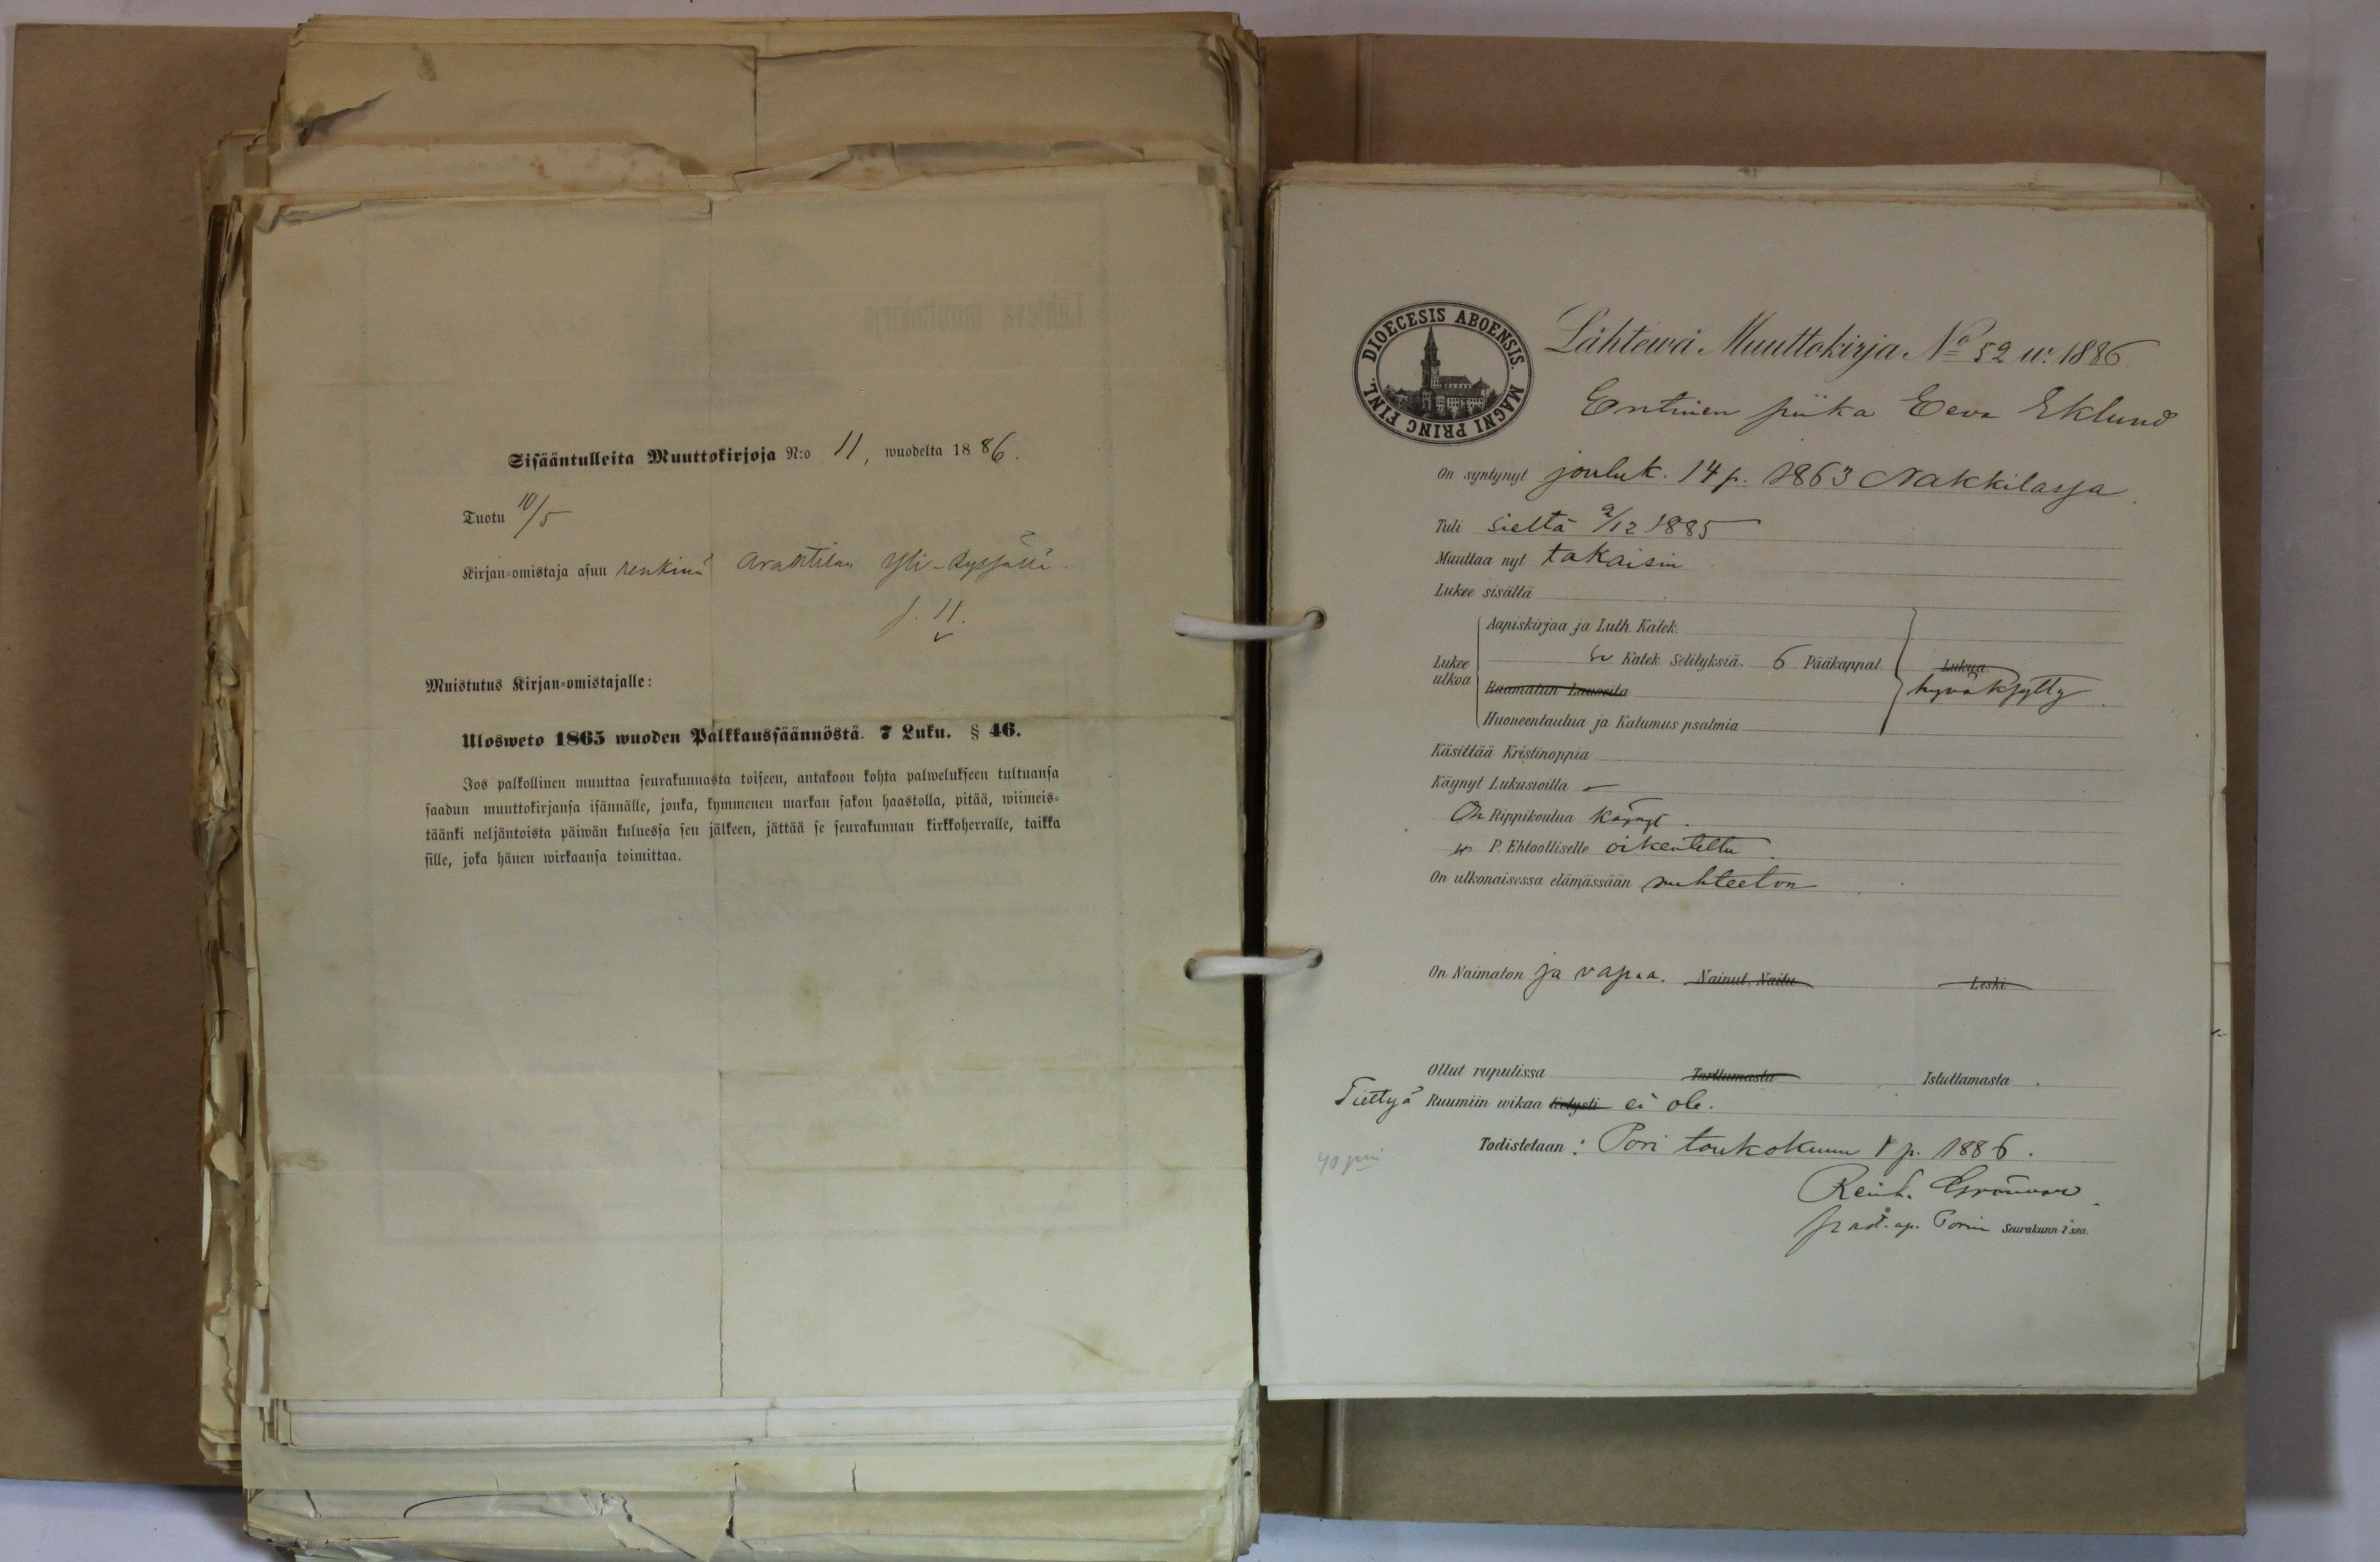 Sisääntulleita Muuttokirjoja N:o 11, wuodelta 1886.
Tuotu 10/5
Kirjan-omistaja asuu renkinä Arantilan Yli-
s. 11.
Muistutus Kirjan-omistajalle:
Ulosweto 1865 wuoden Palkkaussäännöstä. 7 Luku. § 46.
Jos palkollinen muuttaa seurakunnasta toiseen, antakoon kohta palwelukseen tultuansa
saadun muuttokirjansa isännälle, jonka, kymmenen markan sakon haastolla, pitää, wiimeis-
täänki neljäntoista päiwän kuluessa sen jälkeen, jättää se seurakunnan kirkkoherralle, taikka
sille, joka hänen wirkaansa toimittaa.
DIOECESIS ABOENSIS. MAGNI PRINC FINL.
Lähtewä Muuttokirja No 52 w. 1886.
Entinen piika Eeva Eklund
On syntynyt jouluk. 14 p. 1863 Nakkilassa.
Tuli sieltä 2/12 1885
Muuttaa nyt takaisin
Lukee sisältä
Aapiskirjaa ja Luth. Katek.
Lukee ulkoa
Sv Katek. Selityksiä. 6 Pääkappal.
Lukua
hyväksytty.
Raamatun Lauseita
Huoneentaulua ja Katumus psalmia
Käsittää Kristinoppia
Käynyt Lukusioilla —
On Rippikoulua käynyt.
P. Ehtoolliselle oikeutettu.
On ulkonaisessa elämässään nuhteeton
On Naimaton ja vapaa. Nainut, Naitu Leski
Ollut rupulissa Tarttumasta Istuttamasta.
Tiettyä Ruumiin wikaa tietysti ei ole.
Todistetaan: Pori toukokuun 1 p. 1886.
40 pni
Reinh. Grönvall
past. ap. Porin Seurakunnissa.